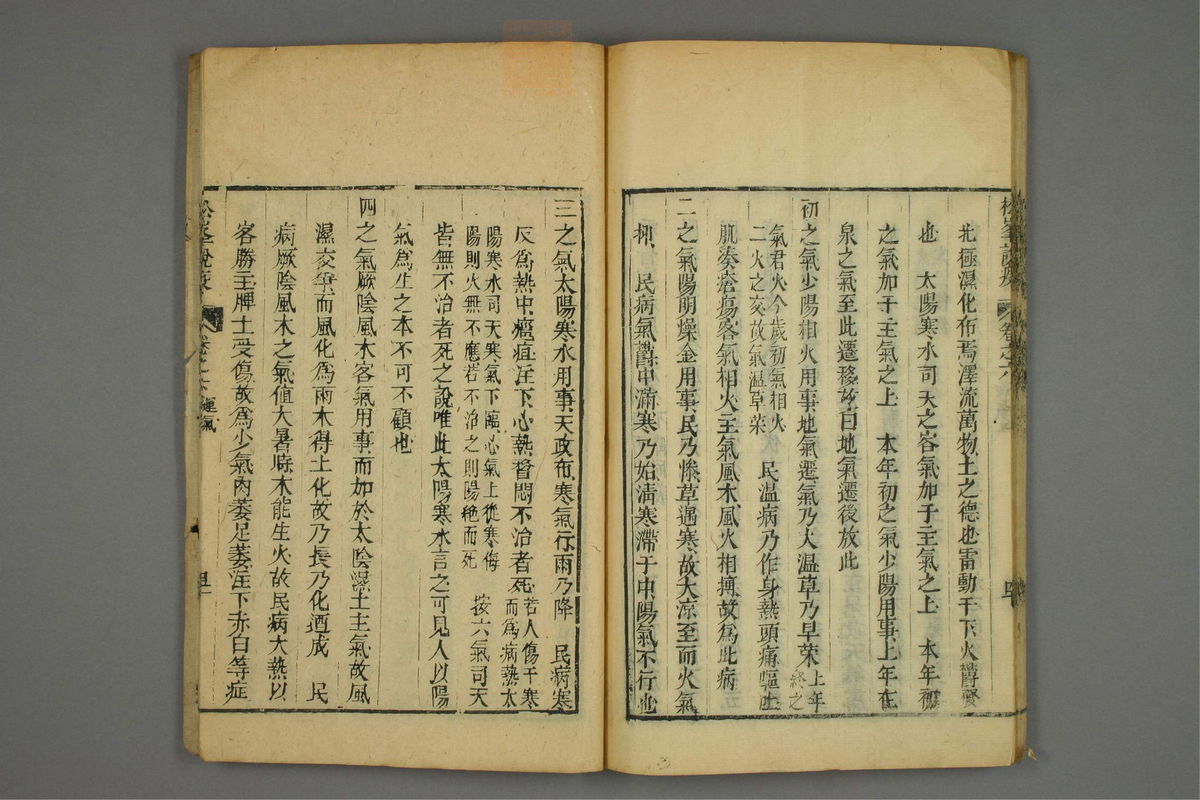 北極濕化布焉澤流萬物土之德也雷動于下火鬱發
也 太陽寒水司天之客氣加于主氣之上 本年初
之氣加于主氣之上 本年初之氣少陽用事上年在
泉之氣至此遷移故曰地氣遷後放此
初之氣少陽相火用事地氣遷氣乃大温草乃早榮上年終之
氣君火今歲初氣相火二火之交故氣温草榮 民温病乃作身熱頭痛嘔吐
肌湊瘡瘍客氣相火主氣風木風火相搏故為此病
二之氣陽明燥金用事民乃慘草遇寒故大凉至而火氣
抑 民病氣鬱中滿寒乃始清寒滯于中陽氣不行也
松峯說疫 卷之六
三之氣太陽寒水用事天政布寒氣行雨乃降 民病寒
反為熱中癰疽注下心熱瞀悶不治者死若人傷于寒而為病熱太
陽寒水司天寒氣下臨心氣上從寒侮陽則火無不應若不治之則陽絶而死 按六氣司天
皆無不治者死之說唯此太陽寒水言之可見人以陽
氣為生之本不可不顧也
四之氣厥陰風木客氣用事而加於太陰濕土主氣故風
濕交爭而風化為雨木得土化故乃長乃化迺成 民
病厥陰風木之氣值大暑時木能生火故民病大熱以
客勝主脾土受傷故為少氣内萎足萎注下赤白等症
松峯說疫 卷之六 運氣